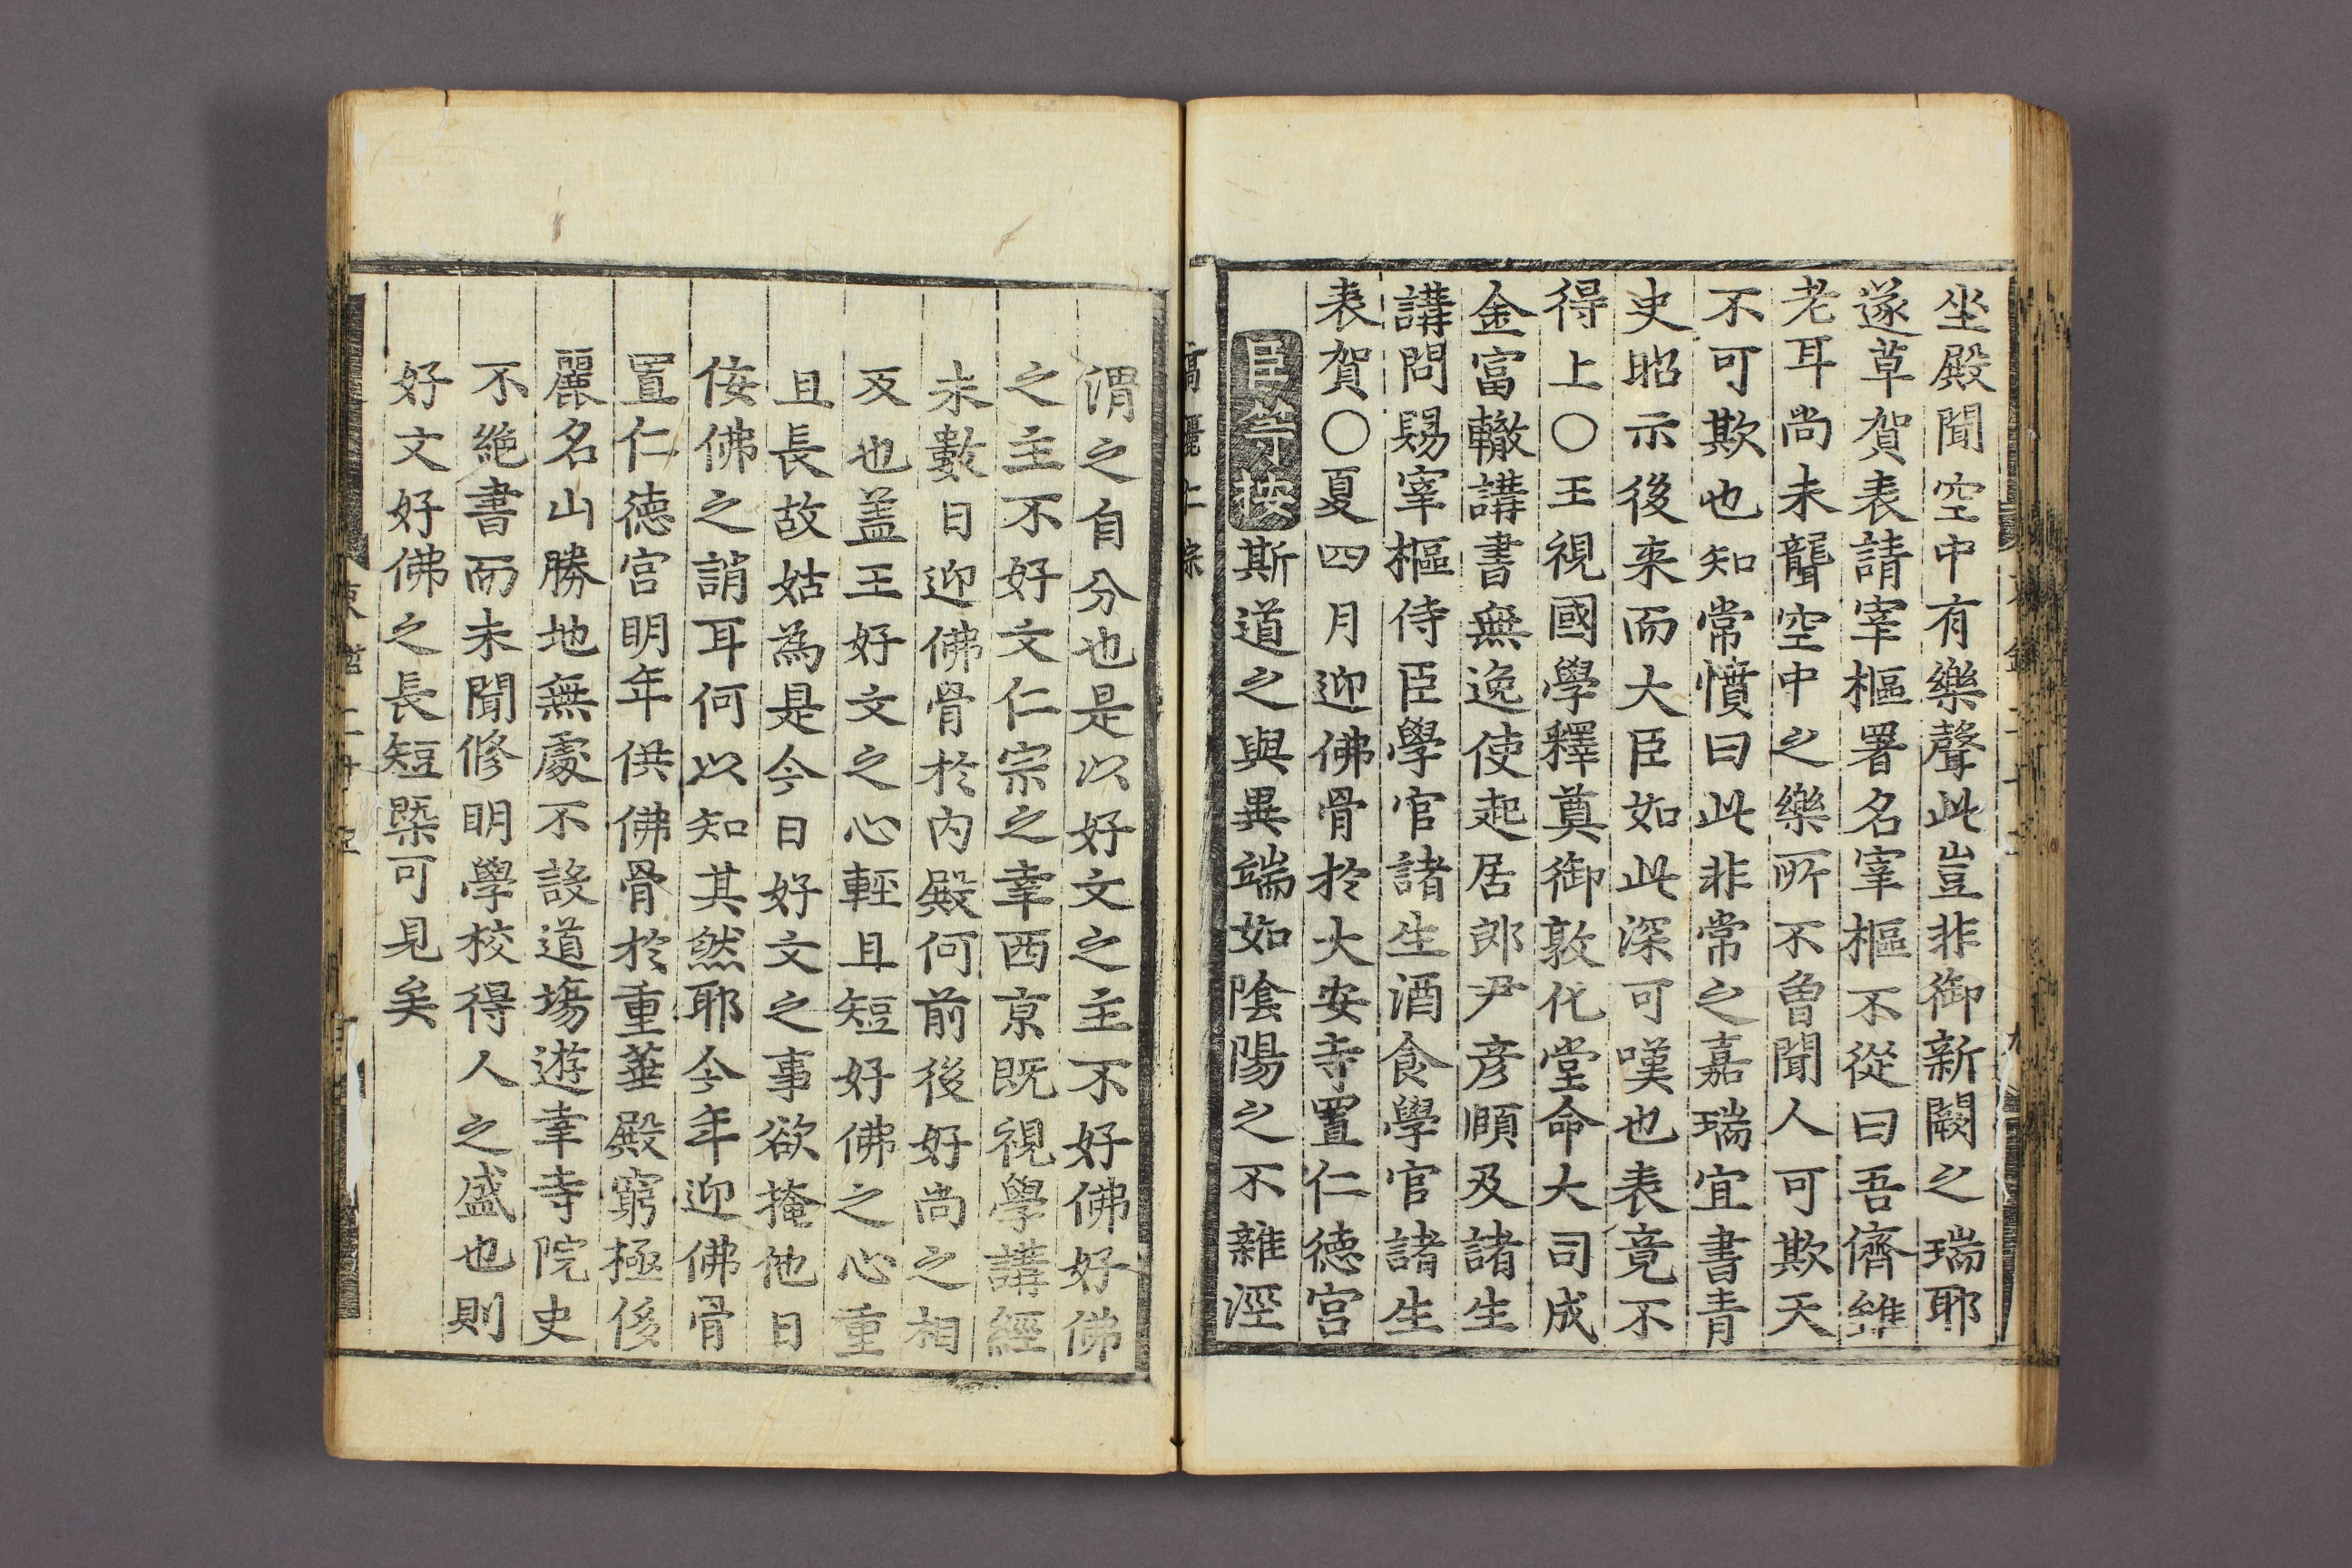 坐殿聞空中有樂聲此豈非御新闕之瑞耶
遂草賀表請宰樞署名宰樞不從曰吾儕雖
老耳尚未聾空中之樂所不曾聞人可欺天
不可欺也知常憤曰此非常之嘉瑞宜書青
史昭示後来而大臣如此深可嘆也表竟不
得上○王視國學釋奠御敦化堂命大司成
金富轍講書無逸使起居郎尹彦頤及諸生
講問賜宰樞侍臣學官諸生酒食學官諸生
表賀○夏四月迎佛骨於大安寺置仁德宮
臣等按斯道之與異端如陰陽之不雜涇
高麗仁宗
渭之自分也是以好文之主不好佛好佛
之主不好文仁宗之幸西京既視學講經
未數日迎佛骨於内殿何前後好尚之相
反也盖王好文之心輕且短好佛之心重
且長故姑為是今日好文之事欲掩他日
侫佛之誚耳何以知其然耶今年迎佛骨
置仁德宮明年供佛骨於重華殿窮極侈
麗名山勝地無處不設道場遊幸寺院史
不絶書而未聞修明學校得人之盛也則
好文好佛之長短槩可見矣